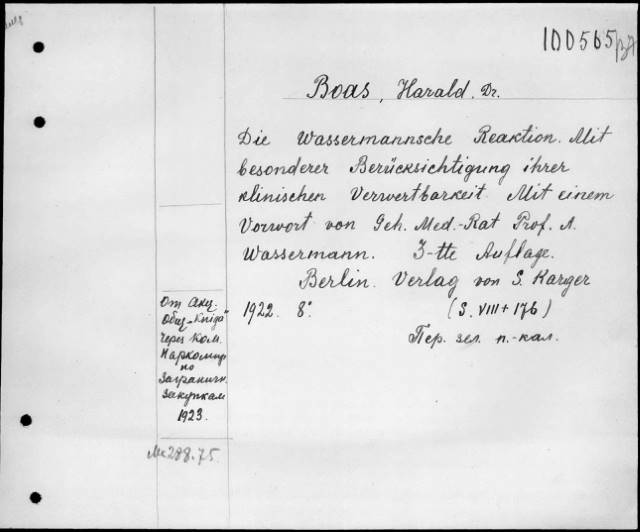 100565
Boas, Harald. Dr.
Die Wassermannsche Reaktion. Mit
besonderer Berücksichtigung ihrer
klinischen Verwertbarkeit. Mit einem
Vorwort von Geh. Med.-Rat Prof. A.
Wassermann. 3-tte Auflage.
Berlin. Verlag von S. Karger
1922. 8°. (S. VIII + 176)
Пер. зел. п.-кал.
От Акц.
Общ. „Kniga"
через Ком.
Наркомпр
по
Заграничн.
закупкам
1923.
288.75.